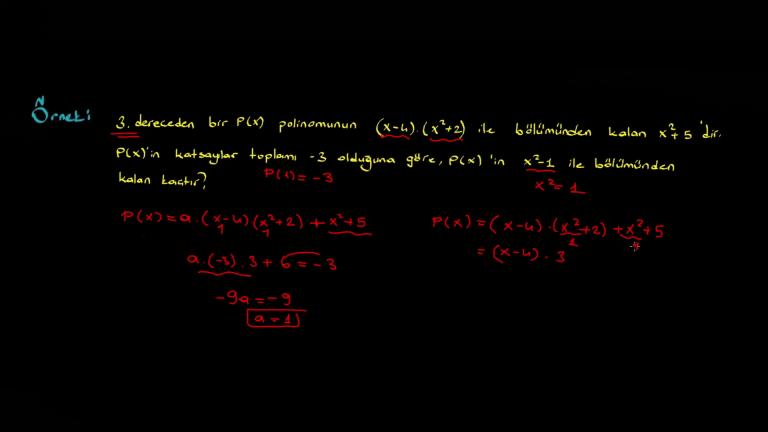 Örnek:
3. dereceden bir P(x) polinomunun (x-4).(x²+2) ile bölümünden kalan x²+5 'dir.
P(x)'in katsayılar toplamı -3 olduğuna göre, P(x)'in x²-1 ile bölümünden
kalan kaçtır?
P(1)=-3
x²=1
P(x)=a.(x-4)(x²+2)+x²+5
1 1
a.(-3).3+6=-3
-9a=-9
a=1
P(x)=(x-4).(x²+2)+x²+5
1
=(x-4).3